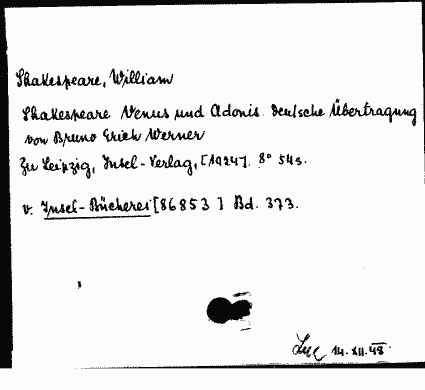 Shakespeare, William
Shakespeare Venus und Adonis. Deutsche Übertragung
von Bruno Erich Werner
Zu Leipzig, Insel-Verlag, [1924]. 8° 54 s.
v. Insel-Bücherei [86853] Bd. 373.
14. XII. 48